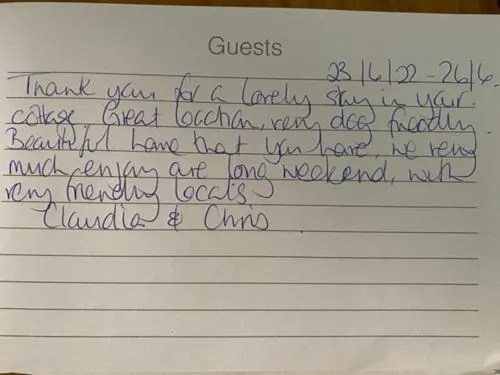 Guests
23/6/22 - 26/6.
Thank you for a lovely stay in your
cottage. Great location, very dog friendly.
Beautiful home that you have, we very
much enjoy are long weekend, with
very friendly locals
Claudia & Chris